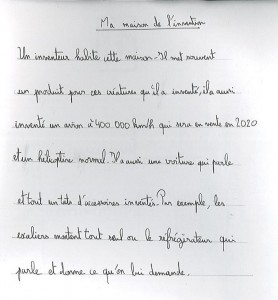 Ma maison de l'invention
Un inventeur habite cette maison. Il met souvent
un produit pour ces créatures qu'il a inventé, il a aussi
inventé un avion à 400 000 km/h qui sera en vente en 2020
et un hélicoptère normal. Il a aussi une voiture qui parle
et tout un tats d'accessoires inventés. Par exemple, les
escaliers montent tout seul ou le réfrigérateur qui
parle et donne ce qu'on lui demande.